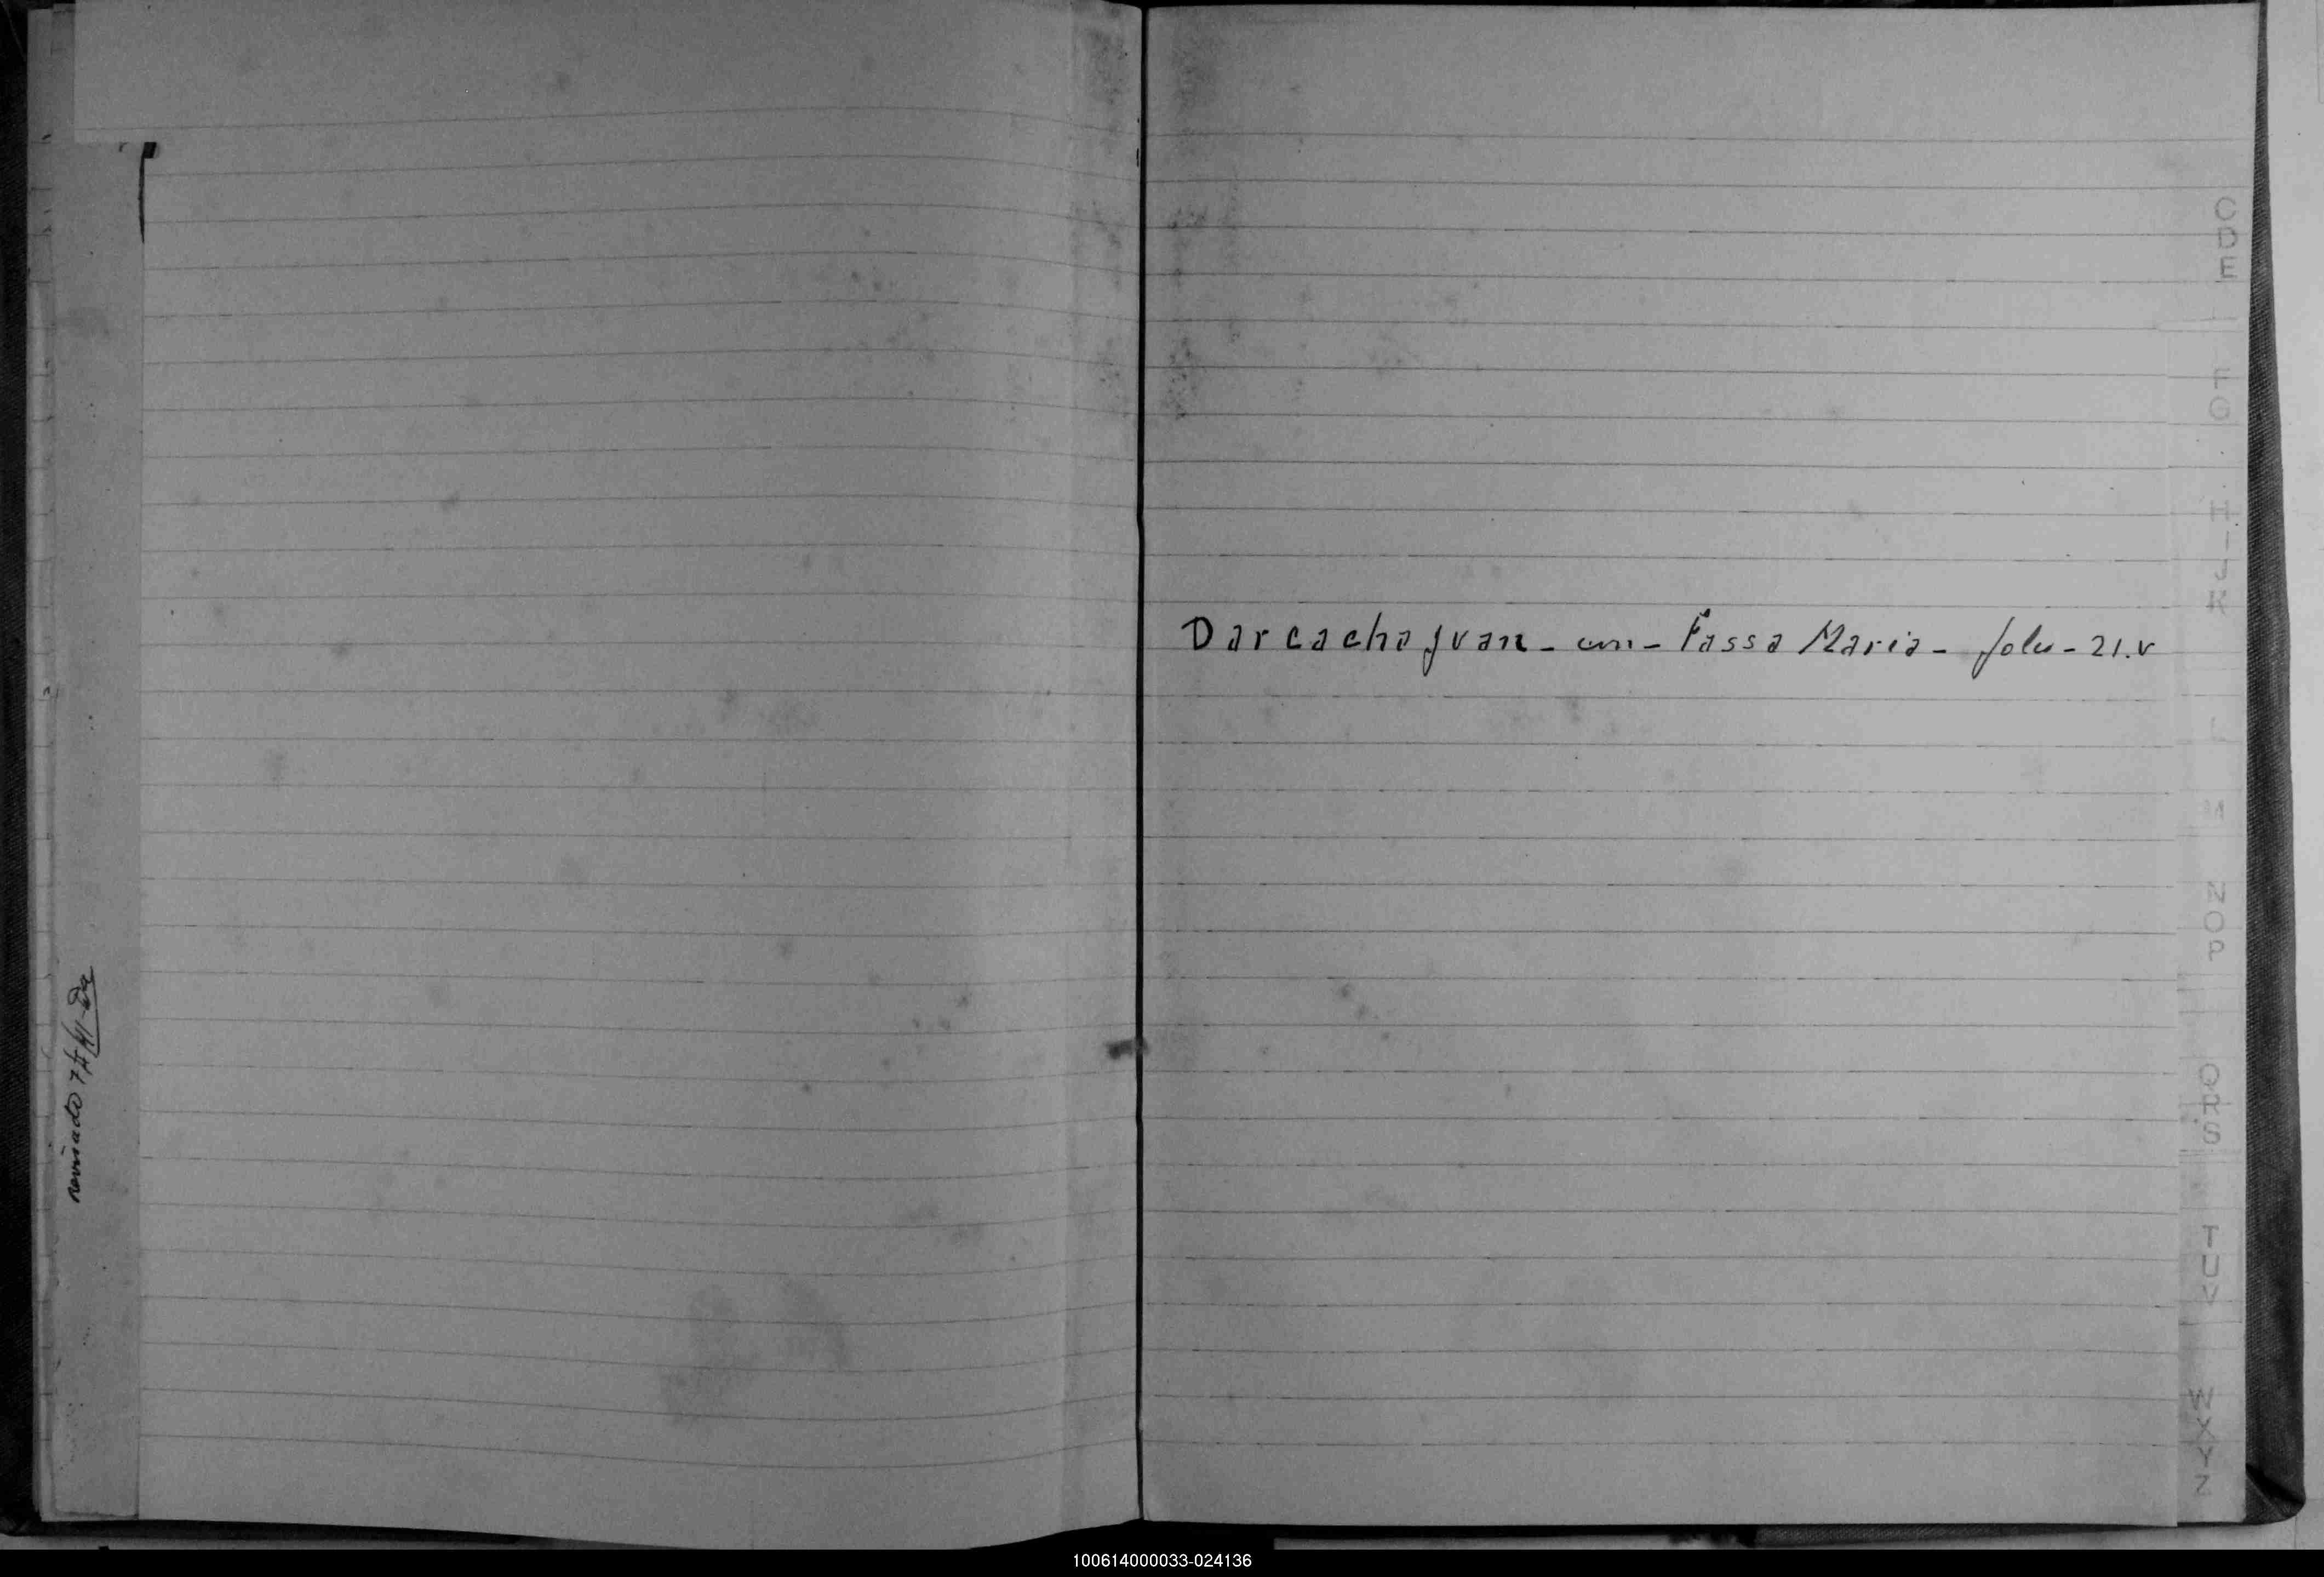 revisado 7
Darcacha Juan - con - Fassa Maria - folio - 21.v
C
D
E
F
G
H
I
J
K
L
M
N
O
P
Q
R
S
T
U
V
W
X
Y
Z
100614000033-024136